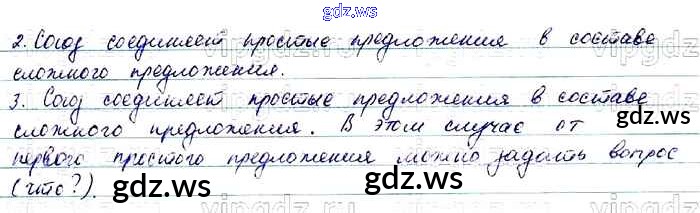 gdz.ws
2. Союз соединяет простые предложения в составе
сложного предложения.
3. Союз соединяет простые предложения в составе
сложного предложения. В этом случае от
первого простого предложения можно задать вопрос
(что?).
gdz.ws
gdz.ws
gdz.ws
gdz.ws